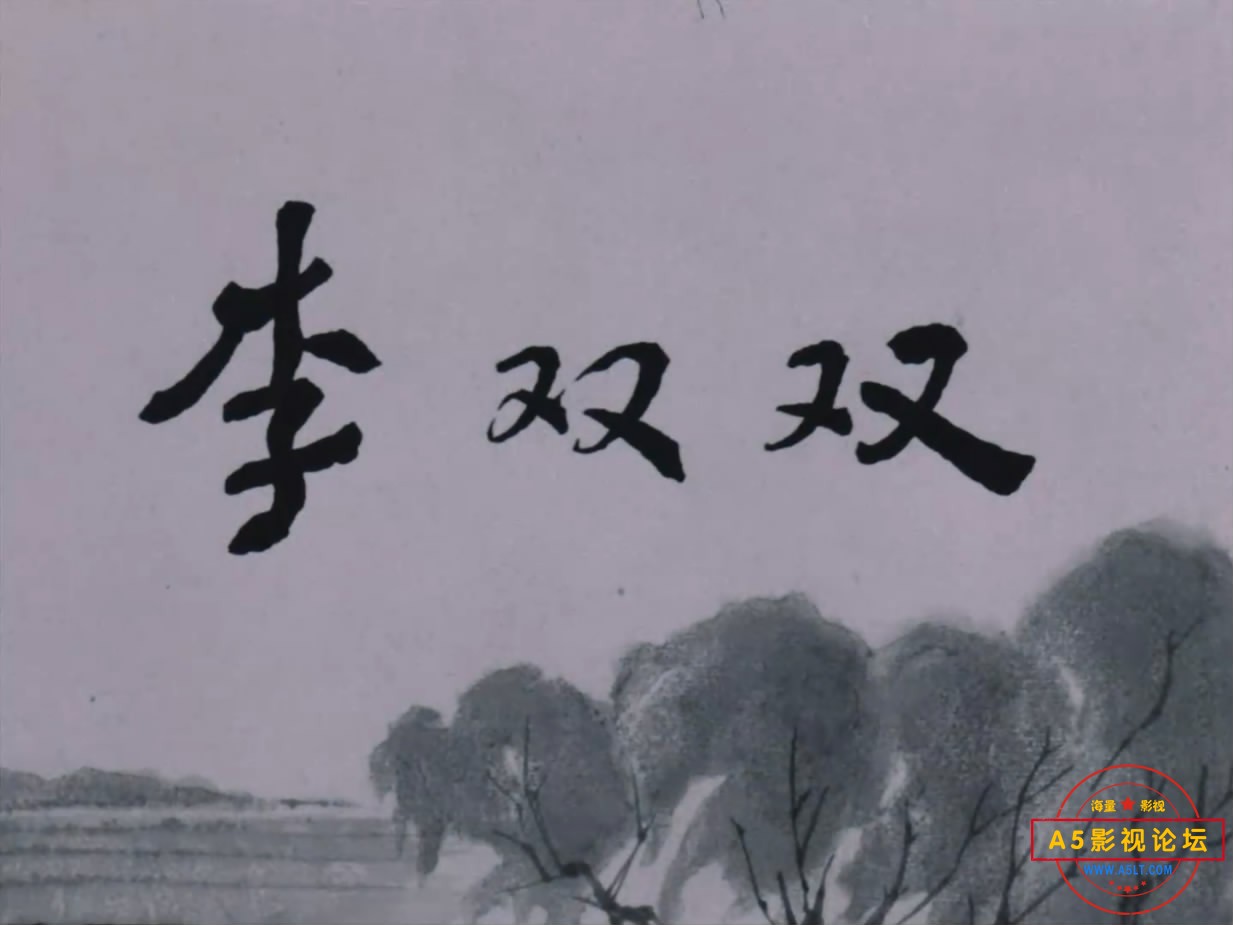 李双双
海量★影视
A5影视论坛
WWW.A5LT.COM